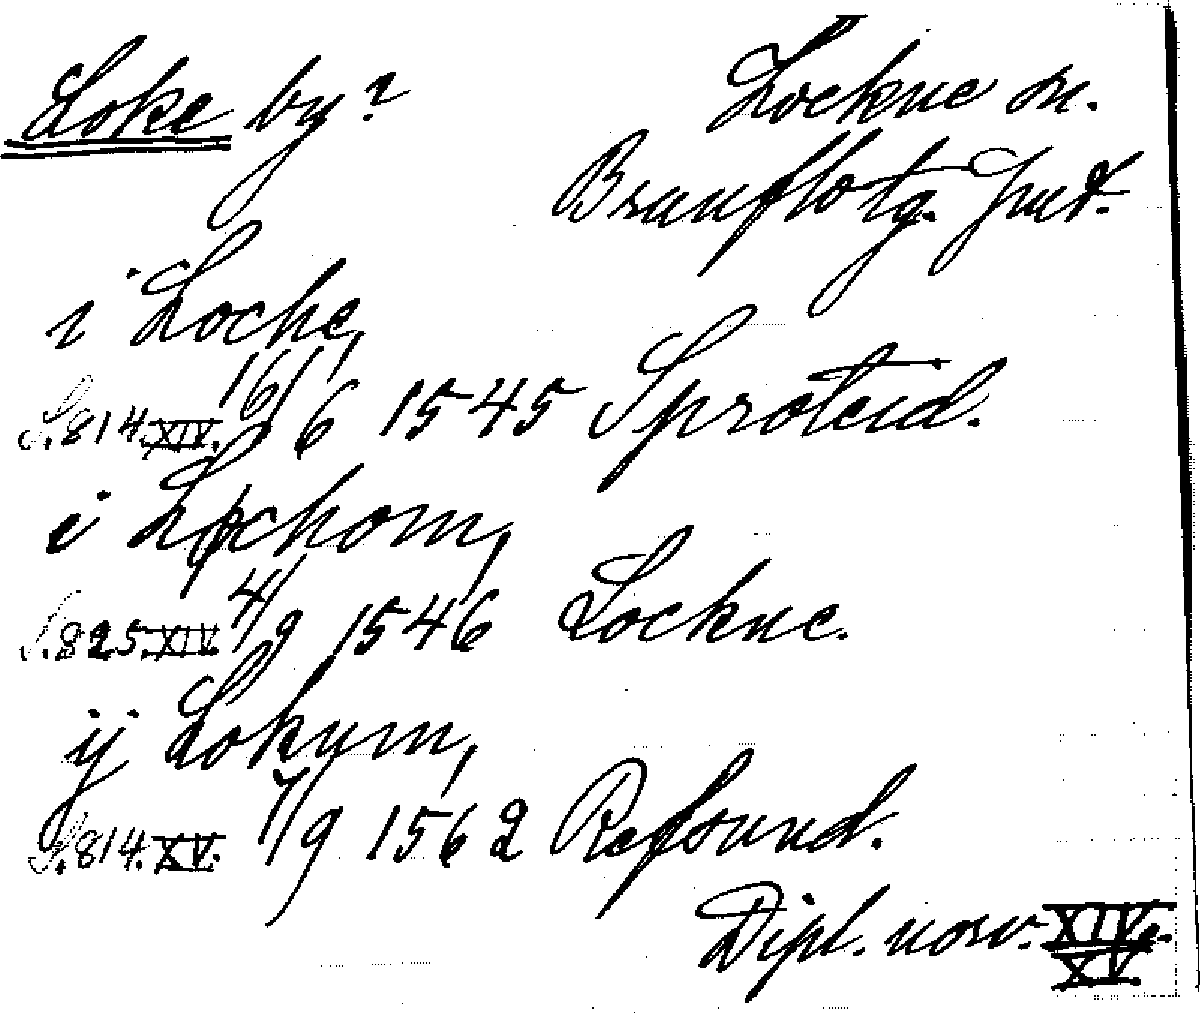 Loke by? Lockne sn.
Brunflo tg. Jmt.
i Locke,
S. 814. XIV. 16/6 1545 Sproteid.
i Lochom,
S. 825. XIV. 4/9 1546 Lockne.
ij Lokym,
S. 814. XV. 7/9 1562 Refsund.
Dipl. norv. XIV.
XV